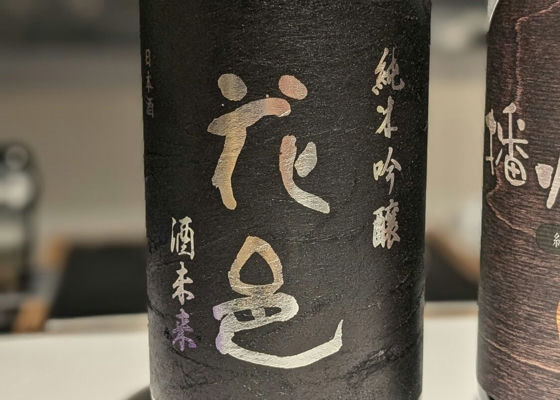 純米吟醸
花邑
酒未来
日本酒
播